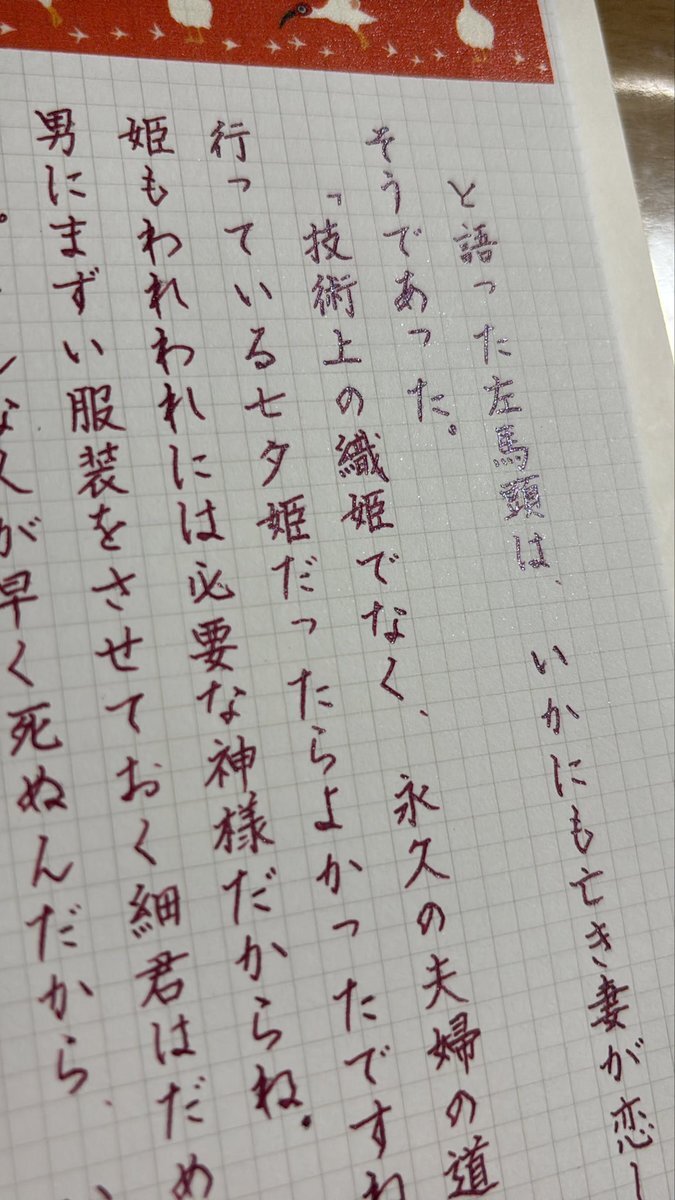 と語った左馬頭は、いかにも亡き妻が恋し
そうであった。
「技術上の織姫でなく、永久の夫婦の道
行っている七夕姫だったらよかったですね
姫もわれわれには必要な神様だからね。
男にまずい服装をさせておく細君はだめ
な人が早く死ぬんだから、